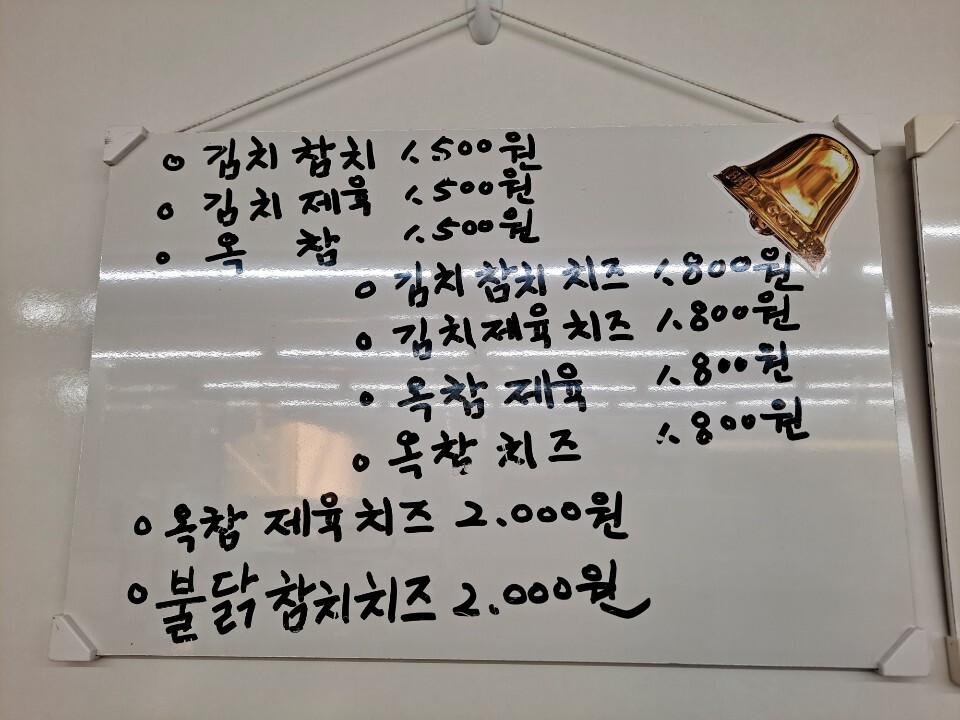 김치 참치 1.500원
김치 제육 1.500원
옥 참 1.500원
김치 참치 치즈 1.800원
김치제육치즈 1.800원
옥참 제육 1.800원
옥참 치즈 1.800원
옥참 제육치즈 2.000원
불닭참치치즈 2.000원